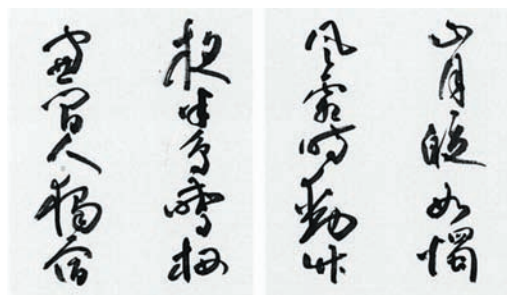 山月皎如燭
風霜時動竹
夜半鳥驚栖
窗間人獨宿